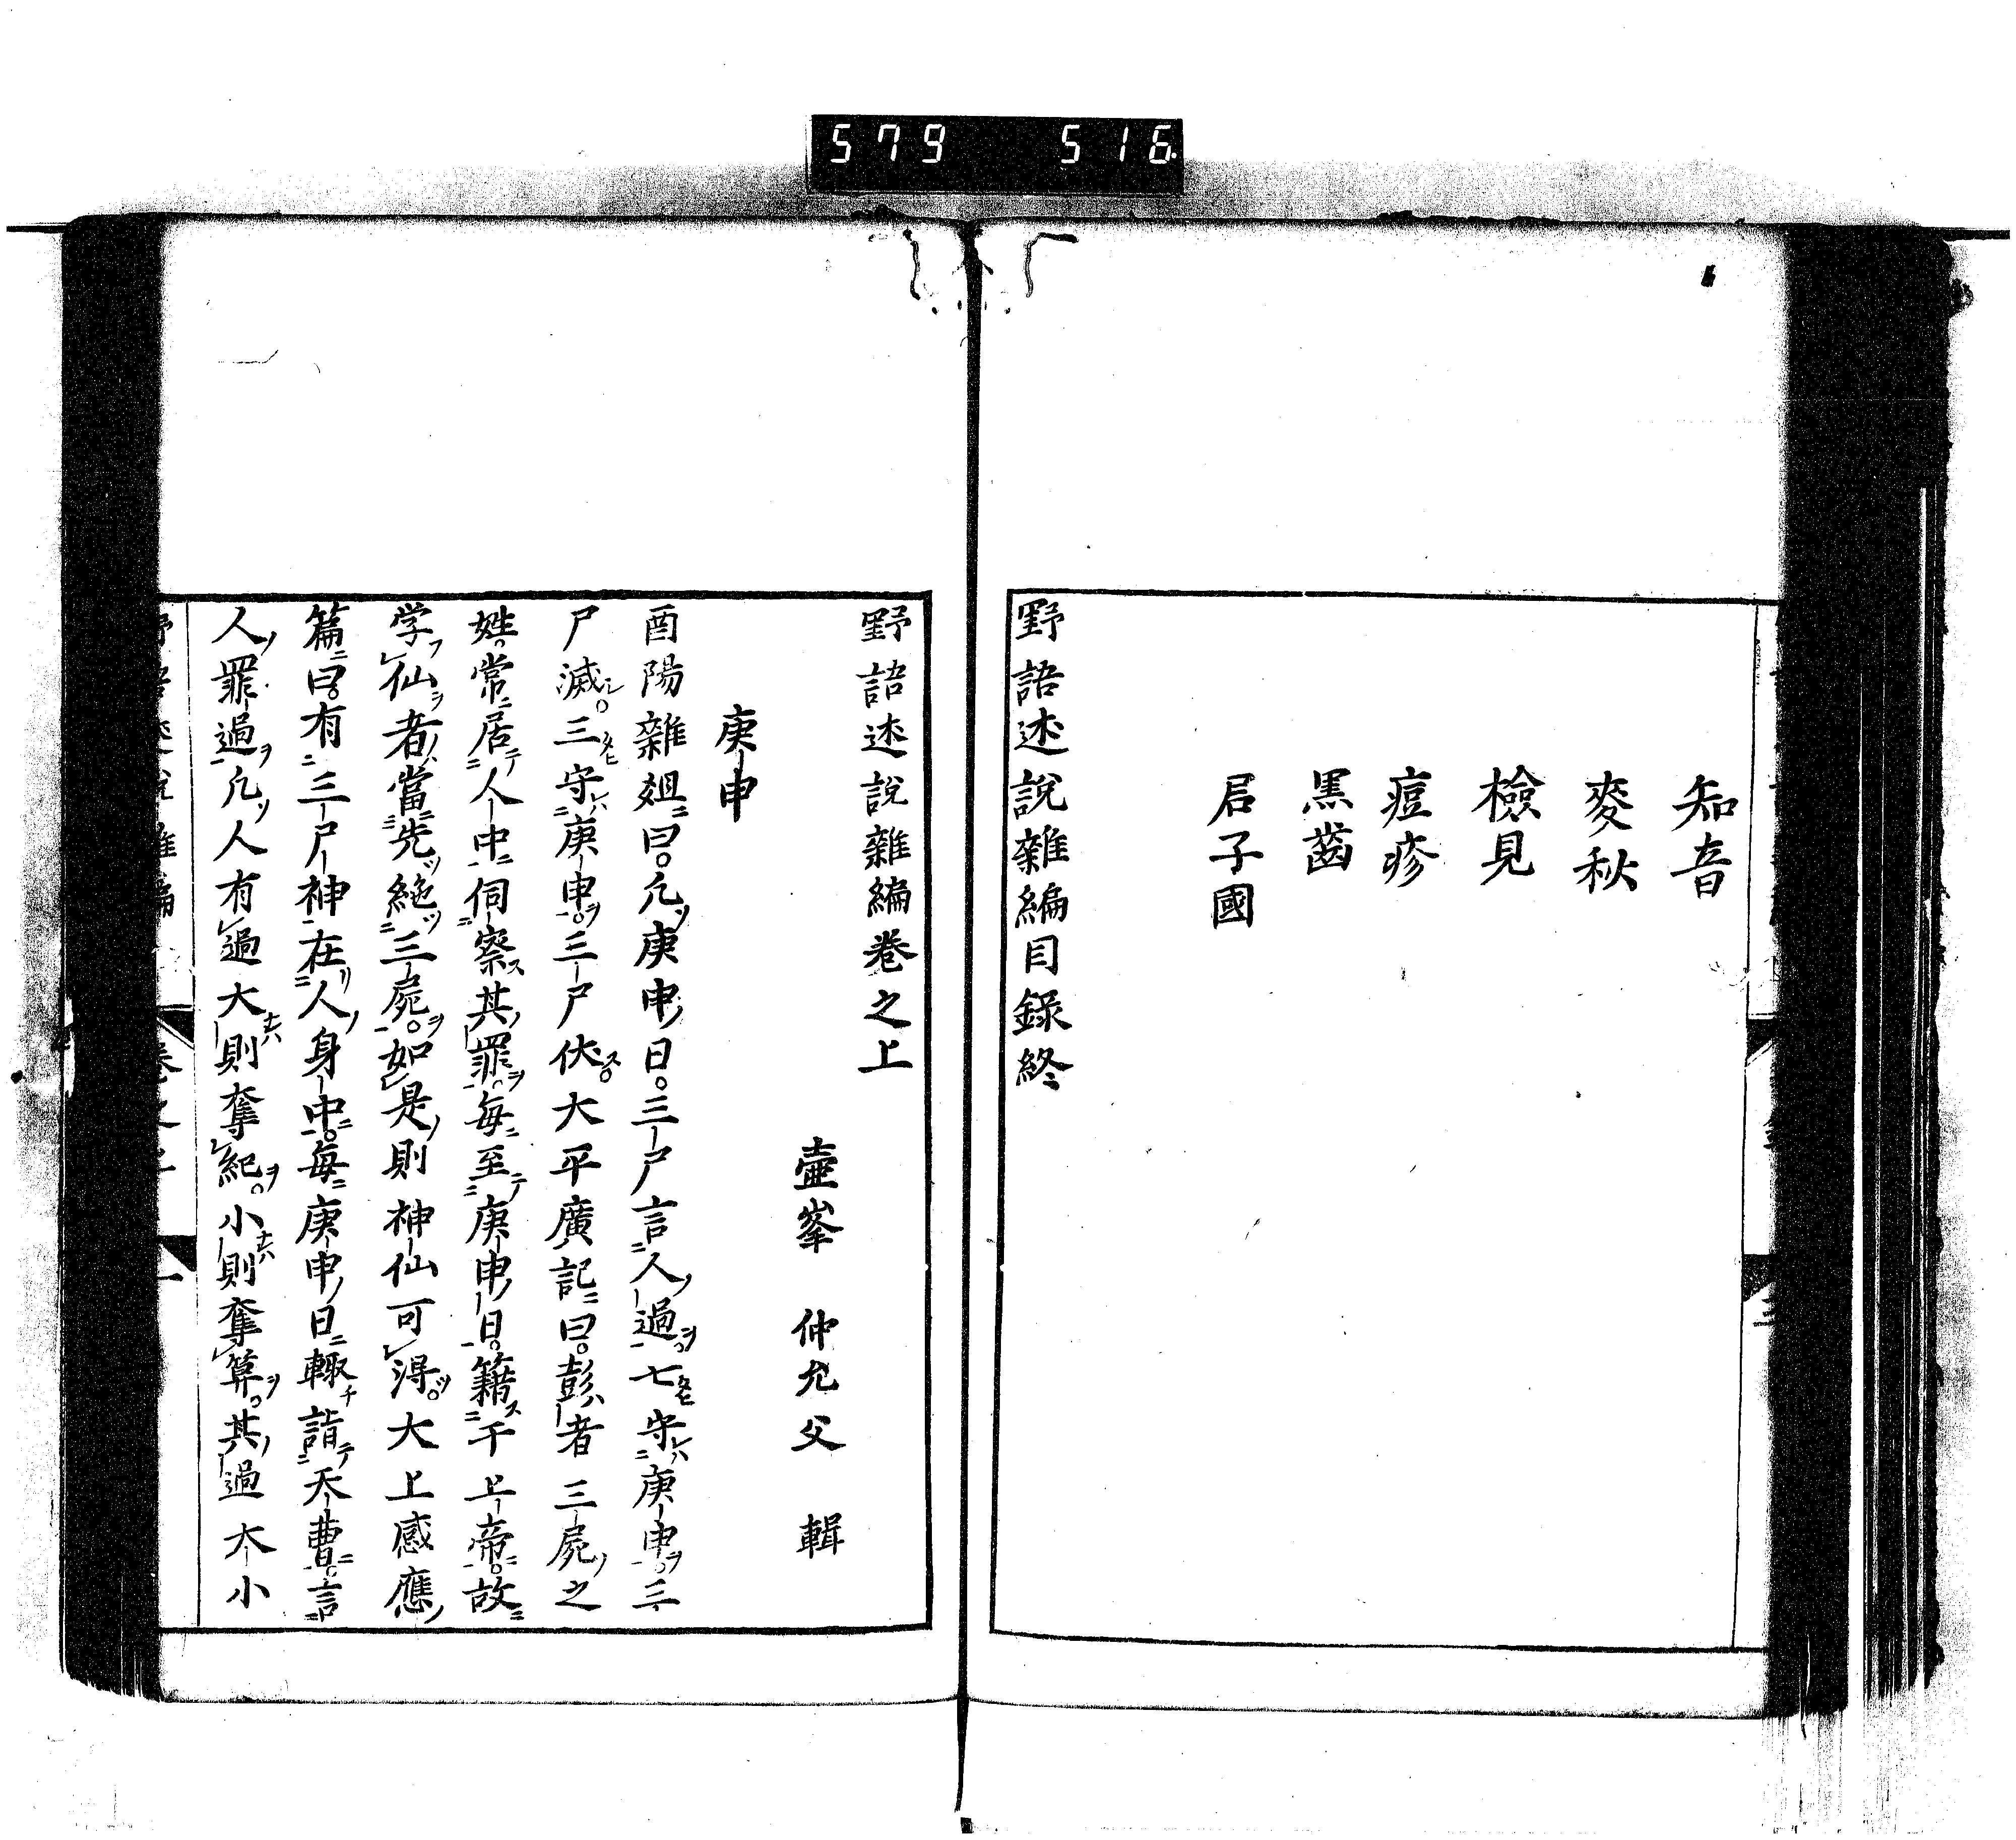 579 516
知音
麥秋
檢見
痘疹
黒齒
君子國
野語述說雜編目録終
野語述說雜編卷之上
壷峯 仲允父 輯
庚申
酉陽雜爼曰凢庚申日三尸言人過七守庚申三
尸滅三守庚申三尸伏大平廣記曰彭者三屍之
姓常居人中伺察其罪每至庚申日籍干上帝故
学仙者當先絶三屍如是則神仙可淂大上感應
篇曰有三尸神在人身中每庚申日輙詣天曹言
人罪過凢人有過大則奪紀小則奪算其過大小